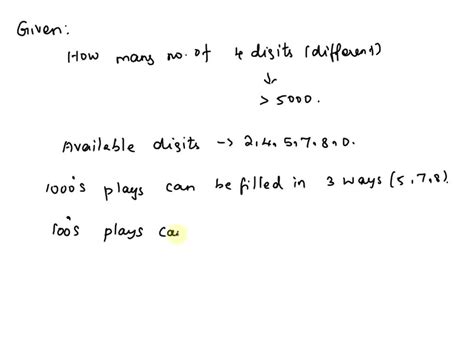 Given:
How many no. of 4 digits (different)
↓
> 5000.
Available digits -> 2,4,5,7,8,0.
1000's plays can be filled in 3 ways (5,7,8)
100's plays ca